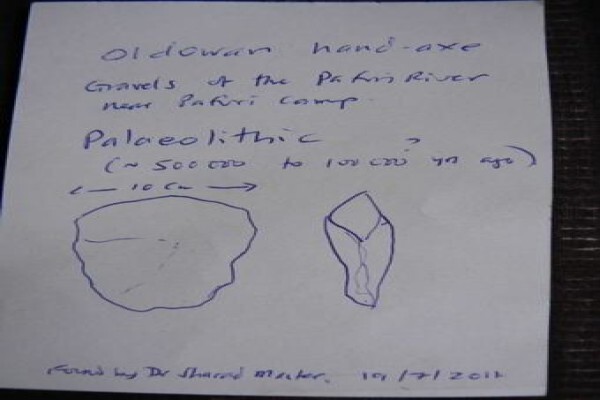 Oldowan hand-axe
Gravels of the Pafuri River
near Pafuri Camp.
Palaeolithic
(~ 500 000 to 100 000 yrs ago)
?
10 cm
Found by Dr Sharad Master. 19/7/201